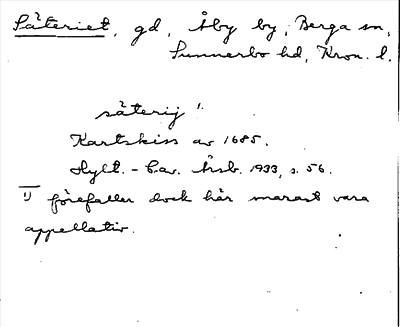 Säteriet, gd, Åby by, Berga sn,
Sunnerbo hd, Kron. l.
säterij ¹⁾
Kartskiss av 1685.
Hylt.-Cav. Årsb. 1933, s. 56.
1) förefaller dock här snarast vara
appellativ.